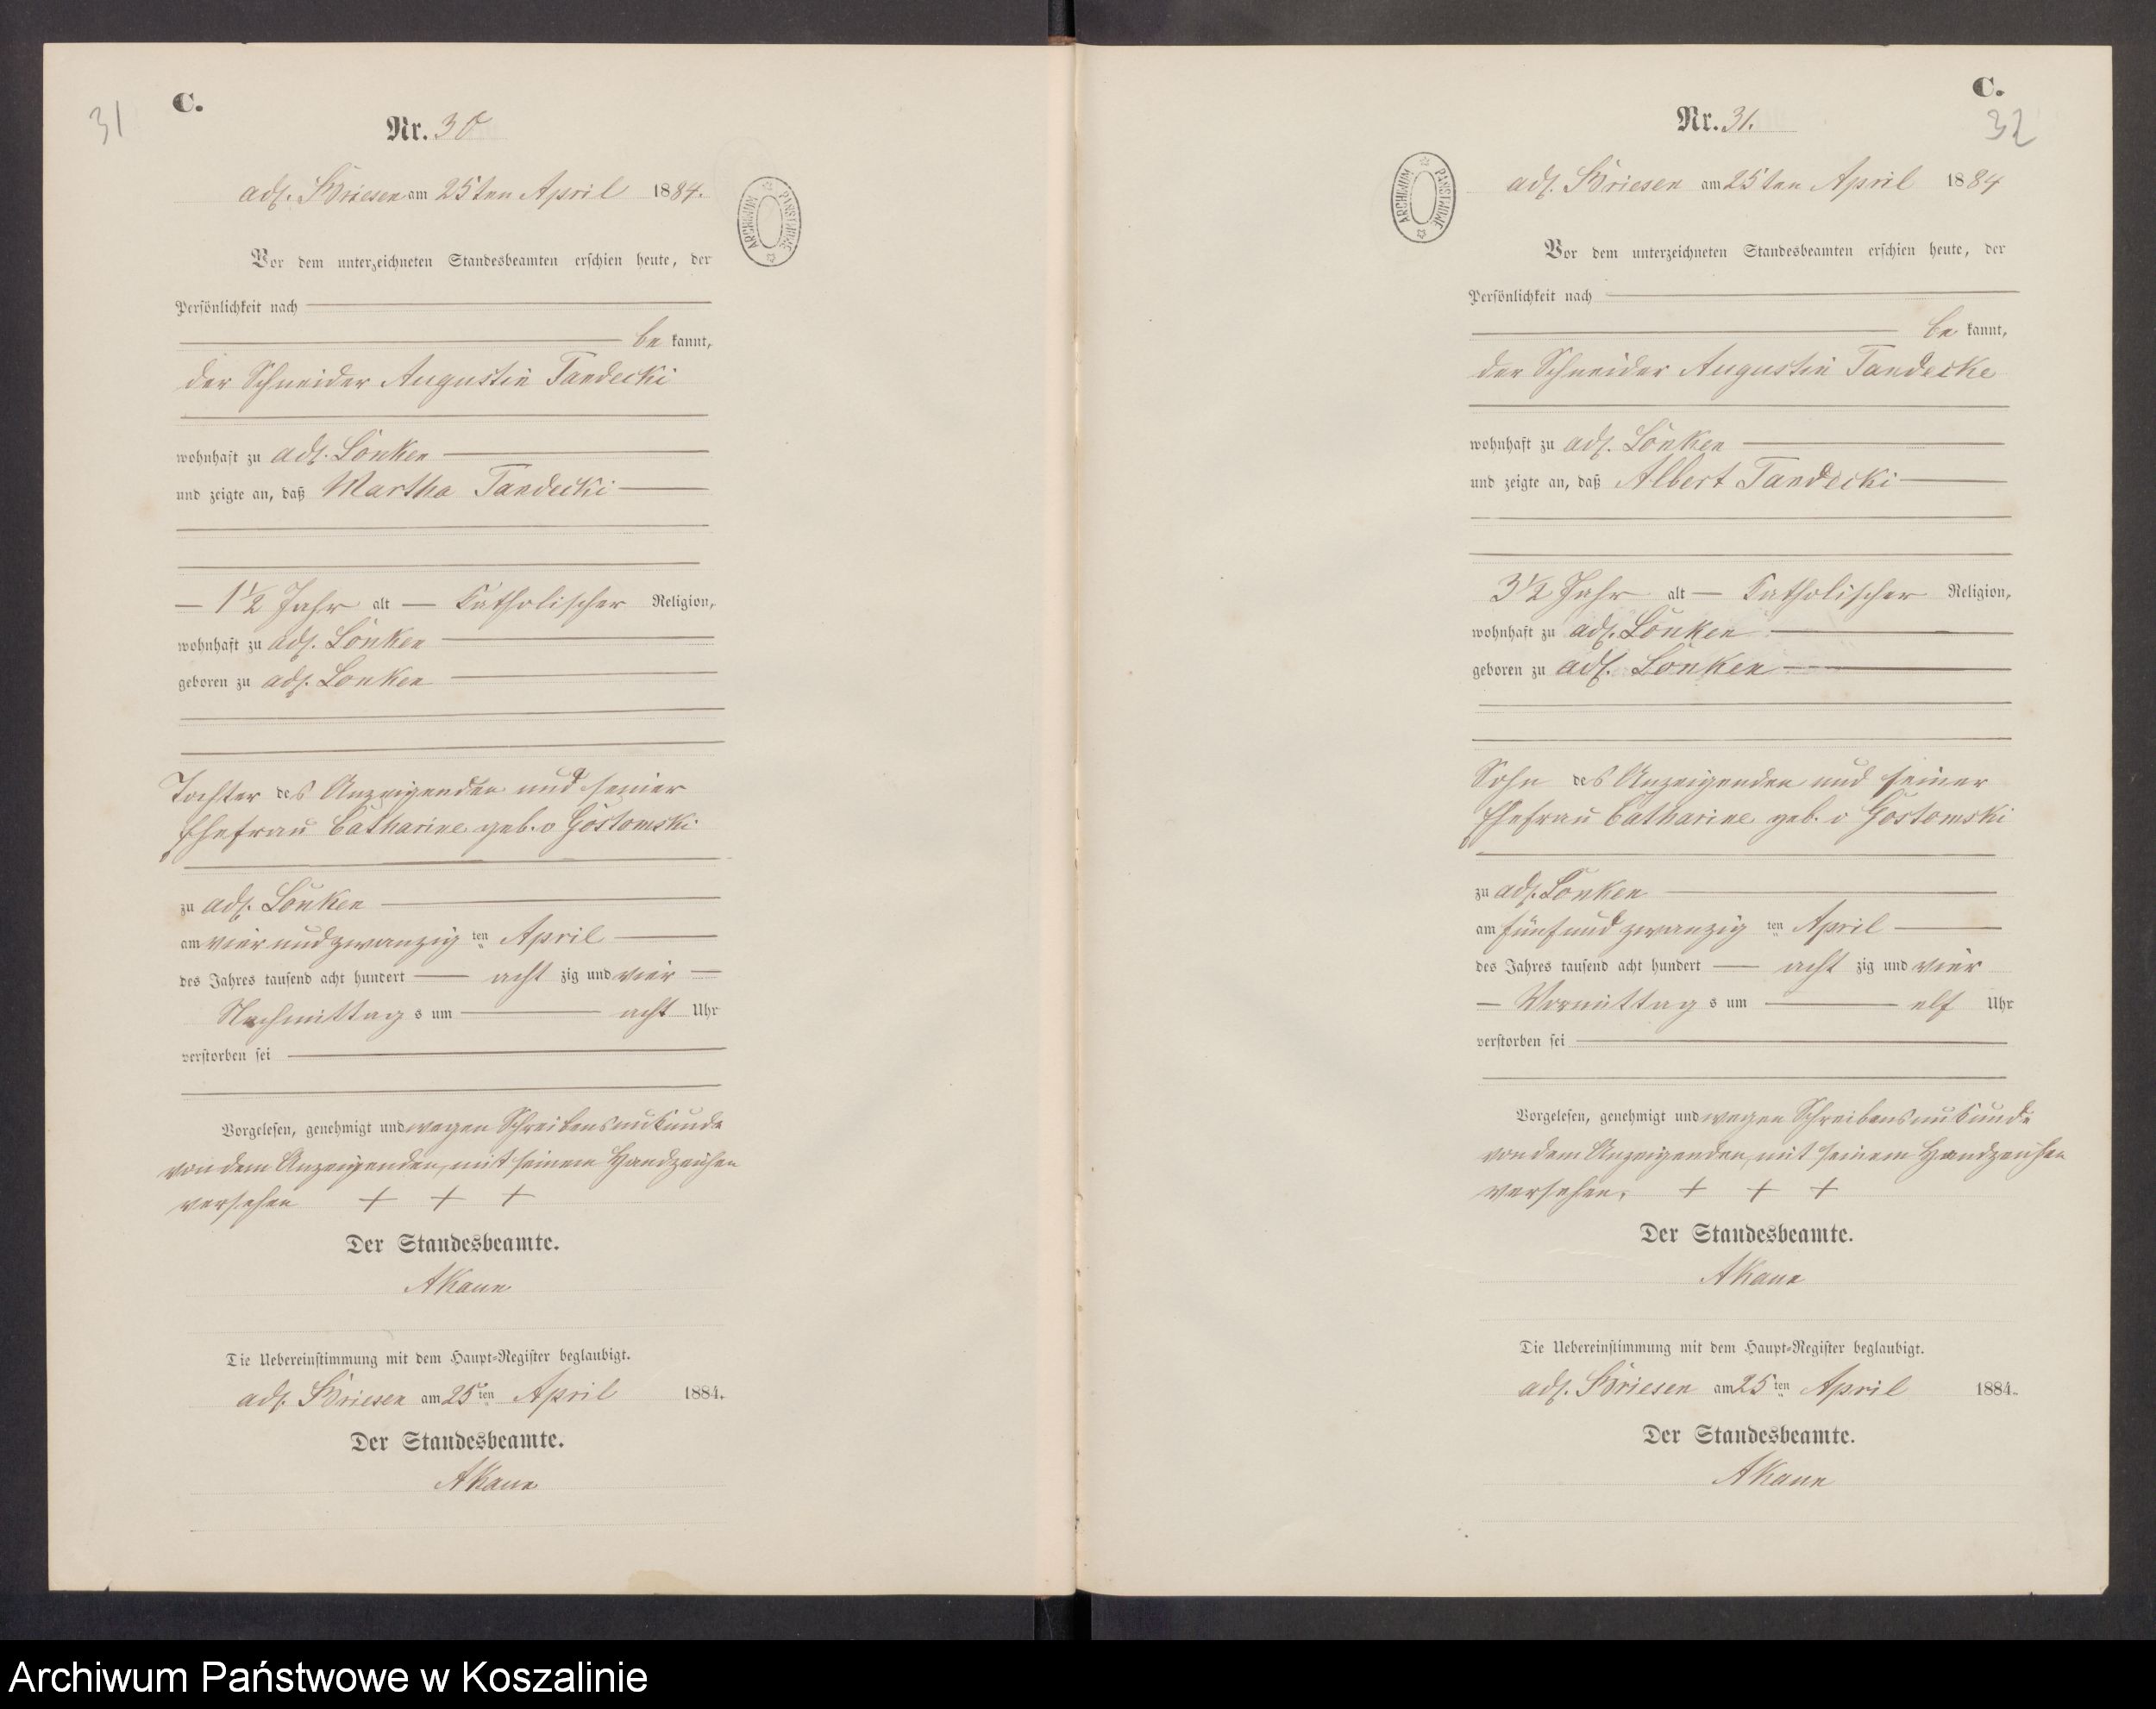 31
C.
Nr. 30
adl. Briesen am 25ten April 1884.
ARCHIWUM PAŃSTWOWE
Vor dem unterzeichneten Standesbeamten erschien heute, der
Persönlichkeit nach
be kannt,
der Schneider Augustin Tandecki
wohnhaft zu adl. Lonken
und zeigte an, daß Martha Tandecki
1 1/2 Jahr alt Katholischer Religion,
wohnhaft zu adl. Lonken
geboren zu adl. Lonken
Tochter des Anzeigenden und seiner
Ehefrau Catharine geb. v Gostomski
zu adl. Lonken
am vier und zwanzig ten April
des Jahres tausend acht hundert acht zig und vier
Nachmittag s um acht Uhr
verstorben sei
Vorgelesen, genehmigt und wegen Schreibensunkunde
von dem Anzeigenden, mit seinem Handzeichen
versehen + + +
Der Standesbeamte.
AKaun
Die Uebereinstimmung mit dem Haupt-Register beglaubigt.
adl. Briesen am 25ten April 1884.
Der Standesbeamte.
AKaun
C.
32
Nr. 31.
adl. Briesen am 25ten April 1884
ARCHIWUM PAŃSTWOWE
Vor dem unterzeichneten Standesbeamten erschien heute, der
Persönlichkeit nach
be kannt,
der Schneider Augustin Tandecke
wohnhaft zu adl. Lonken
und zeigte an, daß Albert Tandecki
3 1/2 Jahr alt Katholischer Religion,
wohnhaft zu adl. Lonken
geboren zu adl. Lonken
Sohn des Anzeigenden und seiner
Ehefrau Catharine geb. v Gostomski
zu adl. Lonken
am fünf und zwanzig ten April
des Jahres tausend acht hundert acht zig und vier
Vormittag s um elf Uhr
verstorben sei
Vorgelesen, genehmigt und wegen Schreibensunkunde
von dem Anzeigenden, mit seinem Handzeichen
versehen, + + +
Der Standesbeamte.
AKaun
Die Uebereinstimmung mit dem Haupt-Register beglaubigt.
adl. Briesen am 25ten April 1884.
Der Standesbeamte.
AKaun
Archiwum Państwowe w Koszalinie